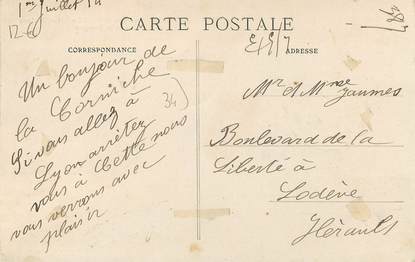 1er Juillet 14
CARTE POSTALE
CORRESPONDANCE
ADRESSE
Un bonjour de
la Corniche
Si vous allez à
Lyon arrêtez
vous à Cette nous
vous verrons avec
plaisir
34
Mr et Mme Jaumes
Boulevard de la
Liberté à
Lodève
Hérault